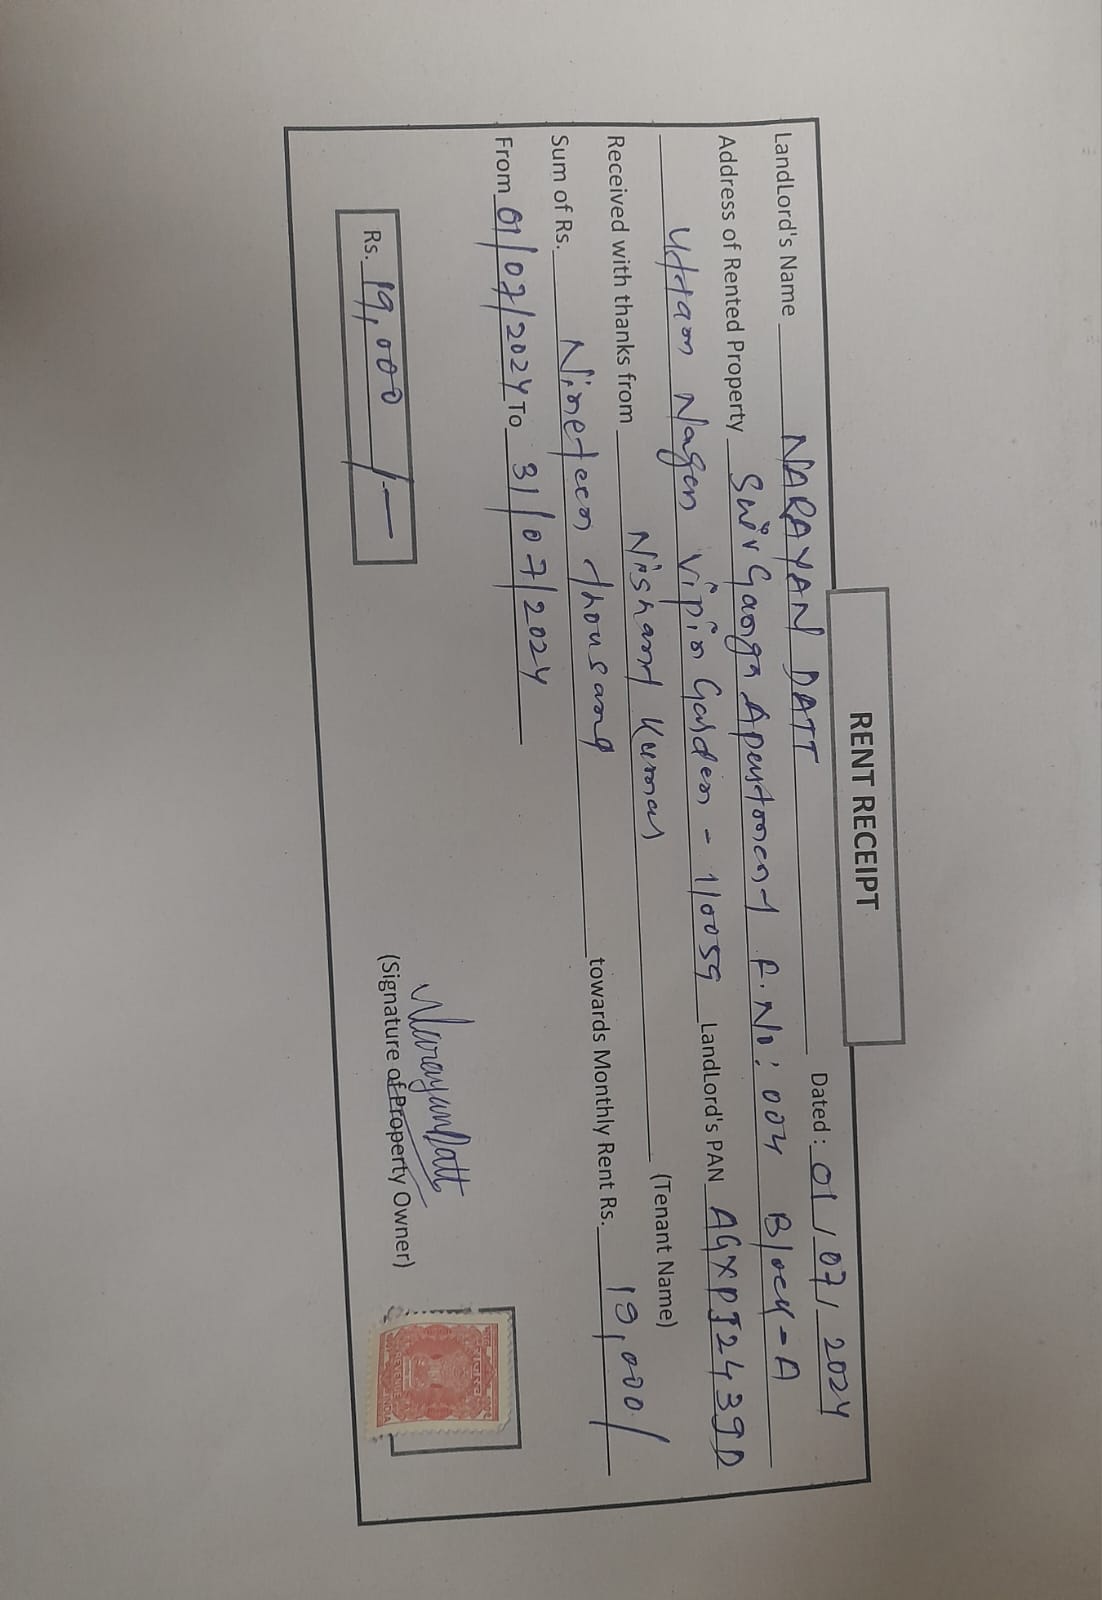 RENT RECEIPT
Dated : 01/07/2024
LandLord's Name NARAYAN DATT
Address of Rented Property Ganga Apartment F.No: 004 Block-A
Uttam Nagar Vipin Garden - 110059 LandLord's PAN
Received with thanks from Nishant Kumar (Tenant Name)
Sum of Rs. Nineteen thousand towards Monthly Rent Rs. 19,000/
From 01/07/2024 To 31/07/2024
Rs. 19,000/-
NarayanDatt
(Signature of Property Owner)
REVENUE
INDIA